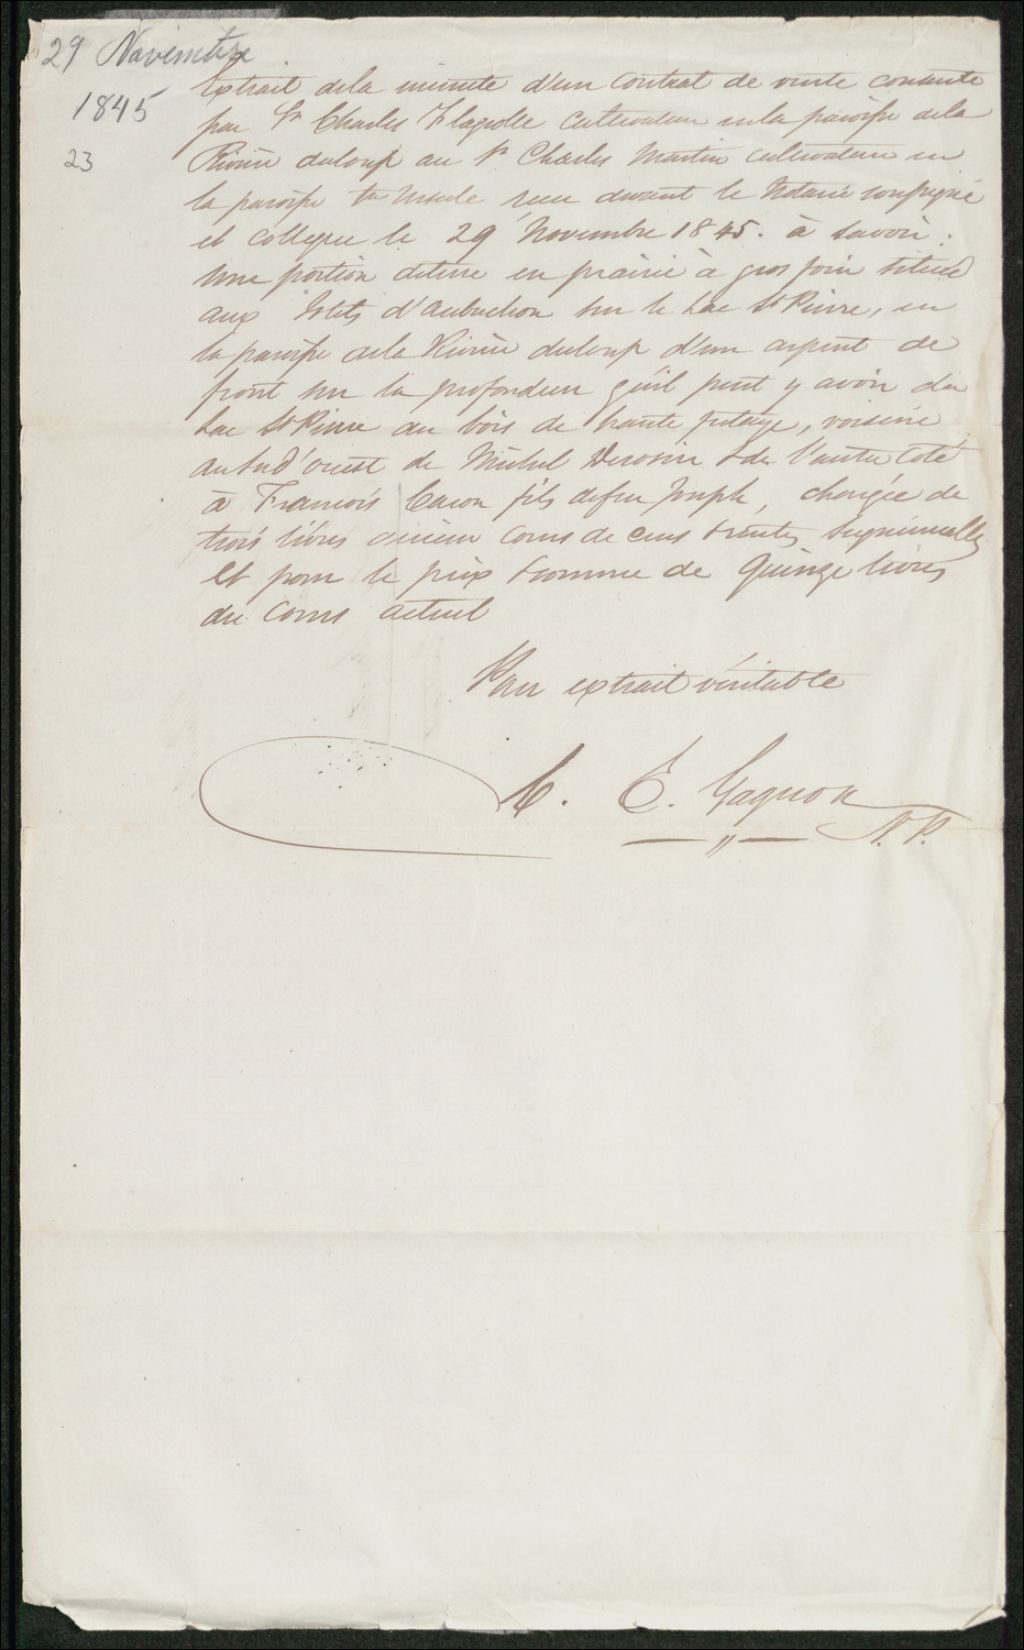 29 Novembre
1845
23
Extrait dela minute d'un Contrat de vente consente
par Sr Charles Flagolle Cultivateur enla paroisse dela
Rivière duloup au Sr Charles Martin cultivateur en
la paroisse Ste Ursule, reçu devant le Notaire soussigné
et collegue le 29 Novembre 1845. à savoir:
Une portion deterre en prairie à gros foin située
aux Ilets d'Aubuchon sur le Lac St Pierre, en
la paroisse dela Rivière duloup d'un arpent de
front sur la profondeur qu'il peut y avoir du
Lac St Pierre au bois de haute futaye, voisine
au Sud'ouest de Michel Desrosier & de l'autre coté
à Francois Caron fils defeu Joseph, chargée de
trois livres ancien Cours de cens & rentes Seigneuriales
Et pour le prix & somme de Quinze livres
du Cours actuel
Pour extrait véritable
C. E. Gagnon
N. P.